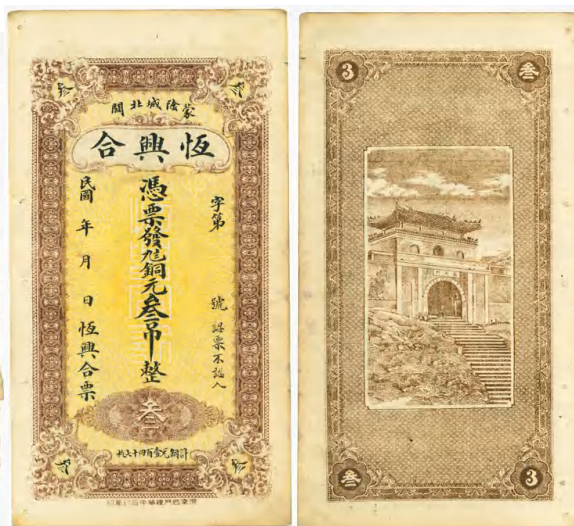 叁 叁
蒙陰城北關
恆興合
字第 號 認票不認人
憑票發九八銅元叁吊整
民國 年 月 日 恆興合票
叁
計銅元壹百四十七枚
叁 叁
3 叁
叁 3